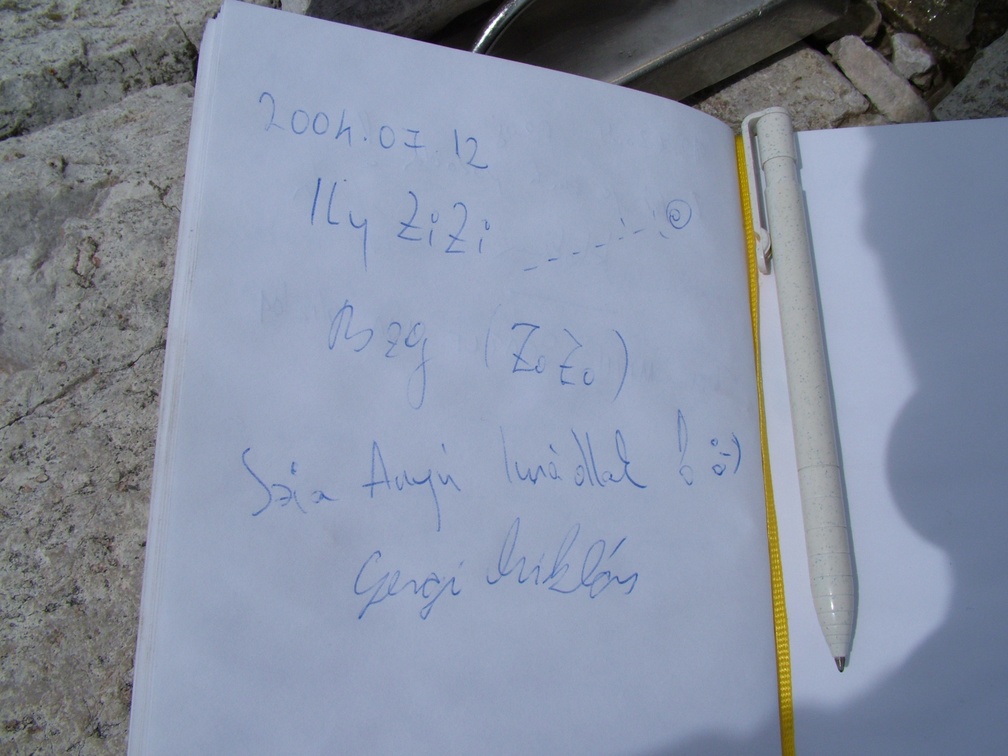 2004.07.12
Ily ZiZi
Bzg (ZoZo)
Szia Anyu
Gergi Miklós